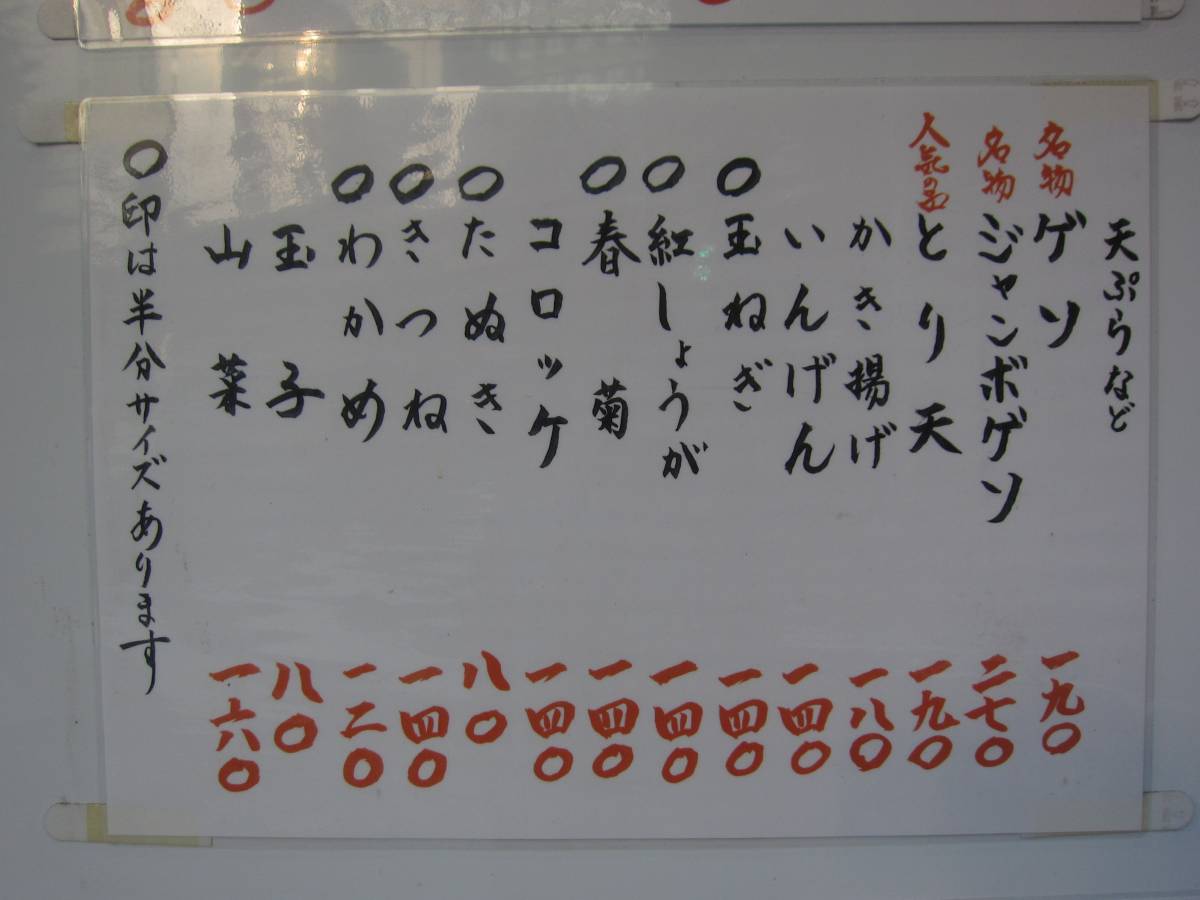 天ぷらなど
名物 ゲソ 一九〇
名物 ジャンボゲソ 二七〇
人気の品 とり天 一九〇
かき揚げ 一八〇
いんげん 一四〇
〇玉ねぎ 一四〇
〇紅しょうが 一四〇
〇春菊 一四〇
コロッケ 一四〇
〇たぬき 八〇
〇きつね 一四〇
〇わかめ 一二〇
玉子 八〇
山菜 一六〇
〇印は半分サイズあります